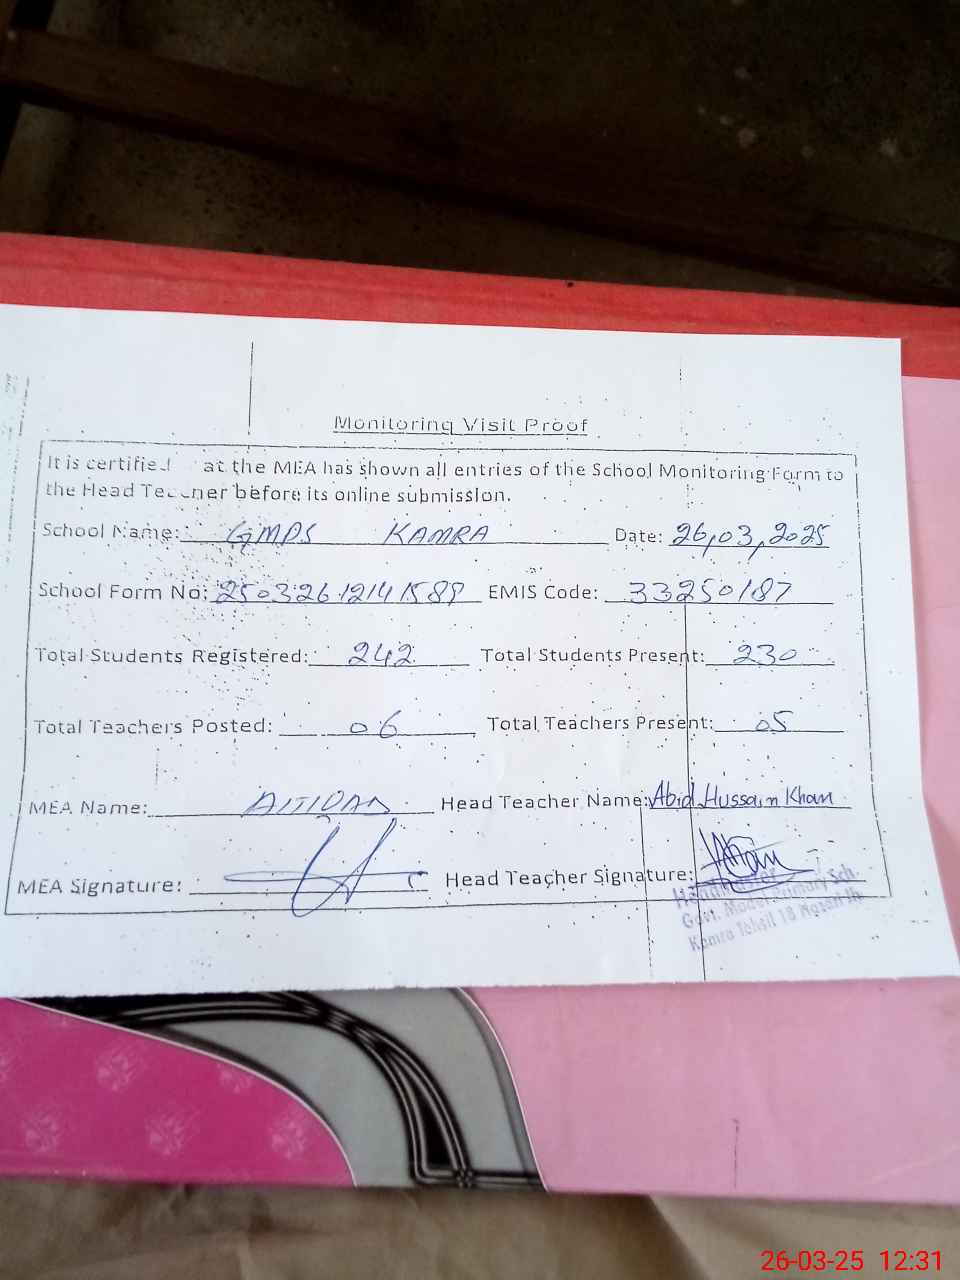 Monitoring Visit Proof
It is certified at the MEA has shown all entries of the School Monitoring Form to
the Head Teacher before its online submission.
School Name: GMPS KAMRA Date: 26,03,2025
School Form No: 25032612141588 EMIS Code: 33250187
Total Students Registered: 242 Total Students Present: 230
Total Teachers Posted: 06 Total Teachers Present: 05
MEA Name: Head Teacher Name: Abid Hussain Khan
MEA Signature: Head Teacher Signature:
Headmaster
Govt. Model Primary Sch.
Kamra Tehsil
26-03-25 12:31